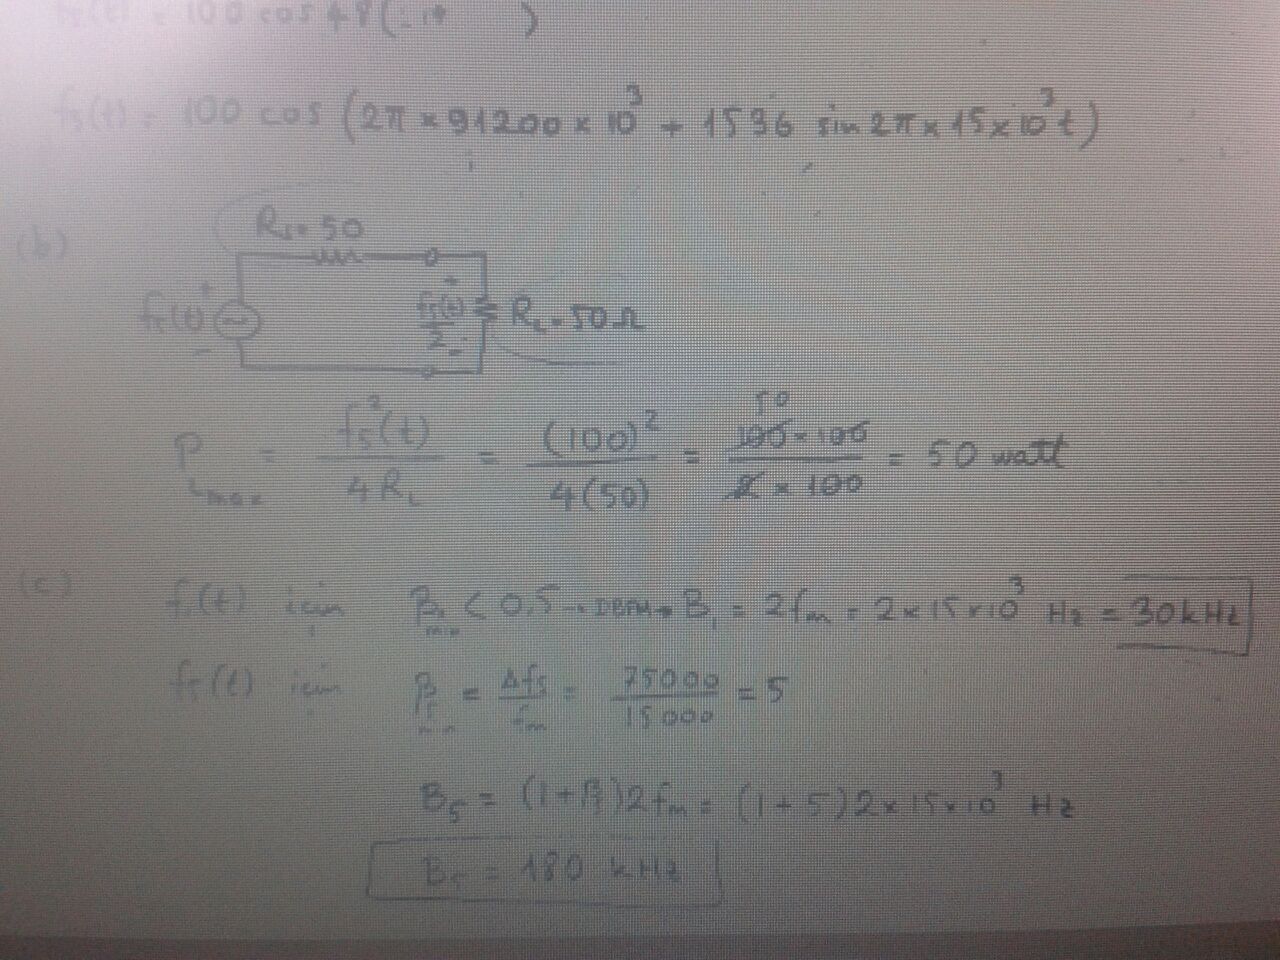 100 cos 48(
f₅(t) = 100 cos (2π × 91200 × 10³ + 1536 sin 2π × 15 × 10³ t)
(b)
R₁ = 50
f₅(t) + −
+ f₅(t)/2 −
R_L = 50Ω
P_Lmax = f₅²(t)/4R_L = (100)²/4(50) = 50 100×100/2×100 = 50 watt
(c) f₁(t) için β₁min < 0.5 → DBFM → B₁ = 2fm = 2×15×10³ Hz = 30kHz
f₅(t) için β₅min = Δf₅/fm = 75000/15000 = 5
B₅ = (1+β)2fm = (1+5)2×15×10³ Hz
B₅ = 180 kHz